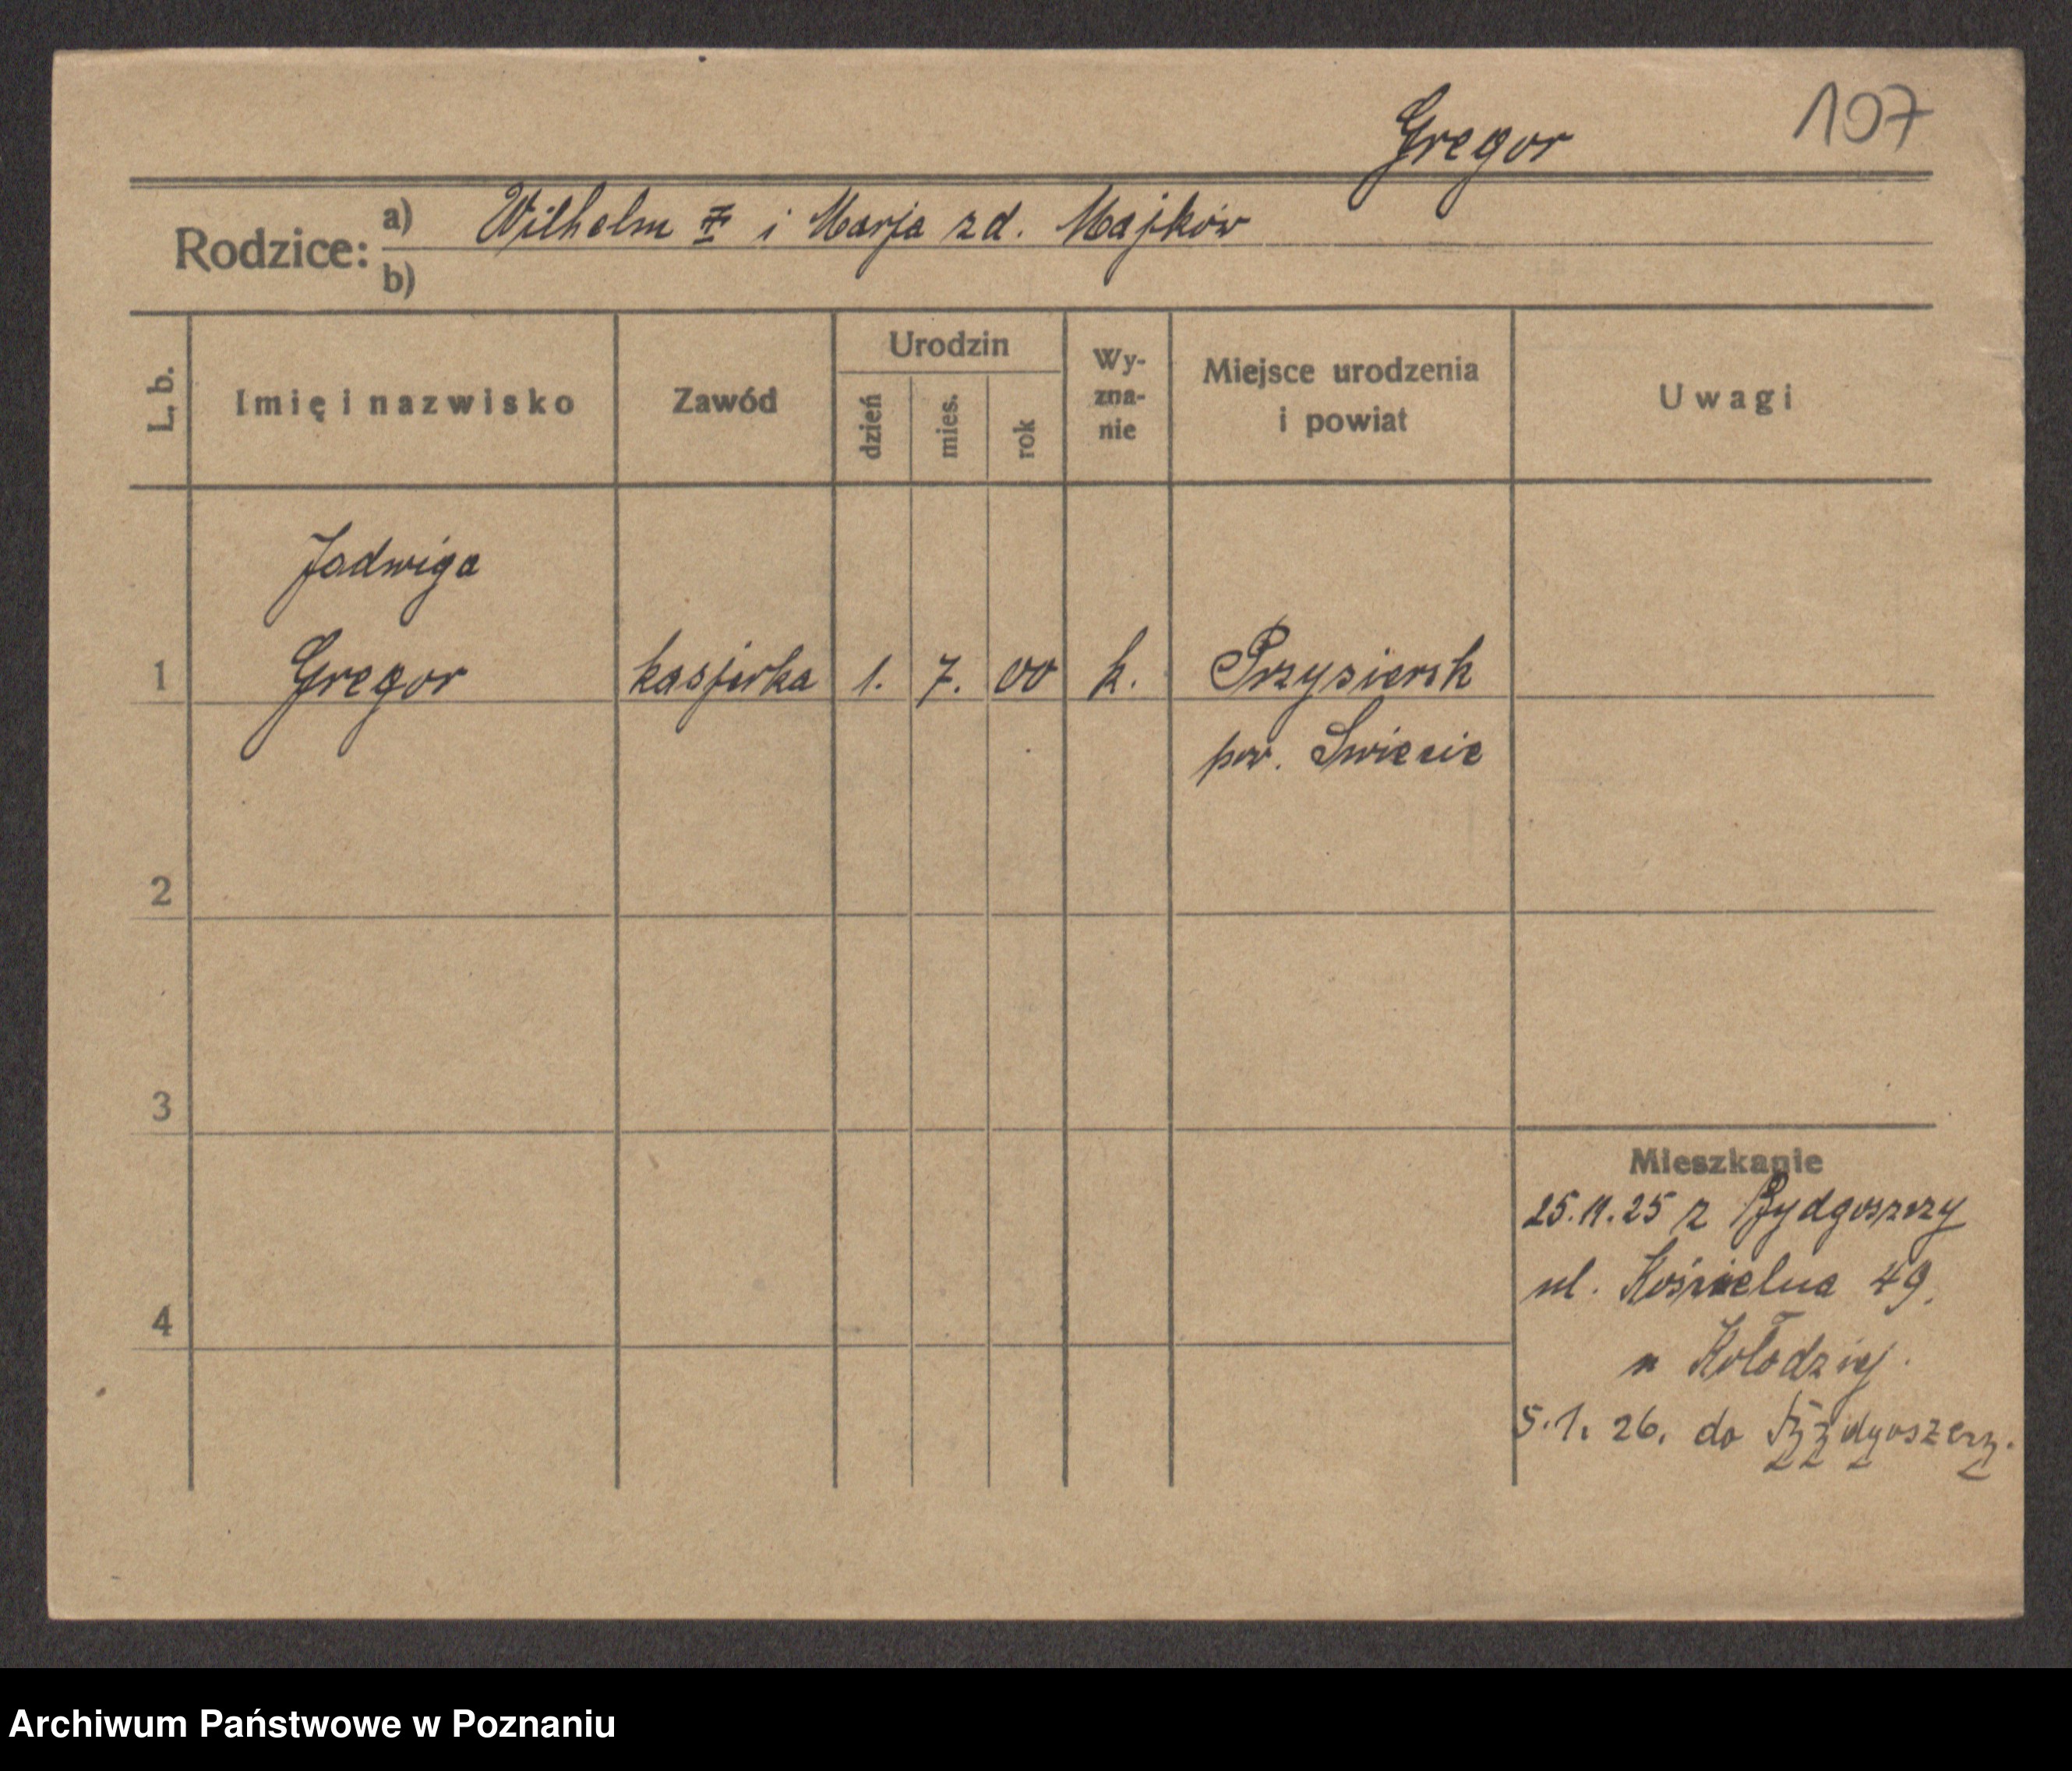 Gregor 107
Rodzice: a) Wilhelm i Marja zd. Majków
b)
L. b. Imię i nazwisko Zawód Urodzin dzień mies. rok Wy-zna-nie Miejsce urodzenia i powiat Uwagi
Jadwiga
1 Gregor kasjerka 1. 7. 00 k. Przysiersk
pow. Swiecie
2
3
Mieszkanie
25.11.25 z Bydgoszczy
ul. Kościelna 49.
4
u Kołodziej.
5.1.26. do Bydgoszczy.
Archiwum Państwowe w Poznaniu